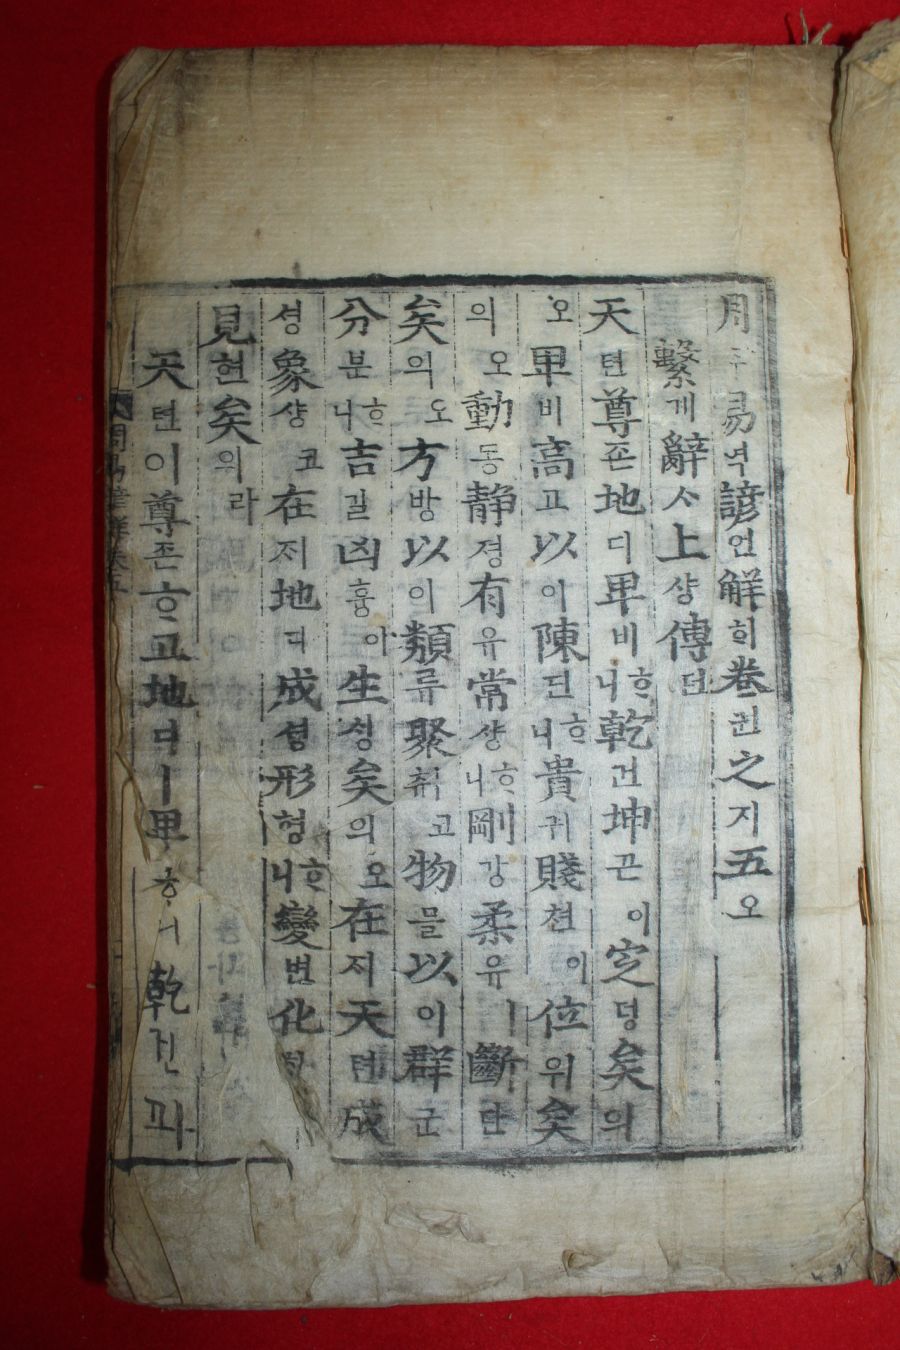 周쥬易역諺언解ᄒᆡ卷권之지五오
繫계辭ᄉ上샹傳뎐
天텬尊존地디卑비ᄒᆞ니乾건坤곤이定뎡矣의
오卑비高고以이陳딘ᄒᆞ니貴귀賤쳔이位위矣
의오動동靜졍有유常샹ᄒᆞ니剛강柔유ㅣ斷단
矣의오方방以이類류聚ᄎᆔ코物믈以이群군
分분ᄒᆞ니吉길凶흉이生ᄉᆡᆼ矣의오在ᄌᆡ天텬成
셩象샹코在ᄌᆡ地디成셩形형ᄒᆞ니變변化화
見현矣의라
天텬이尊존ᄒᆞ고地디ㅣ卑ᄒᆞ니乾건과
周易諺解卷五